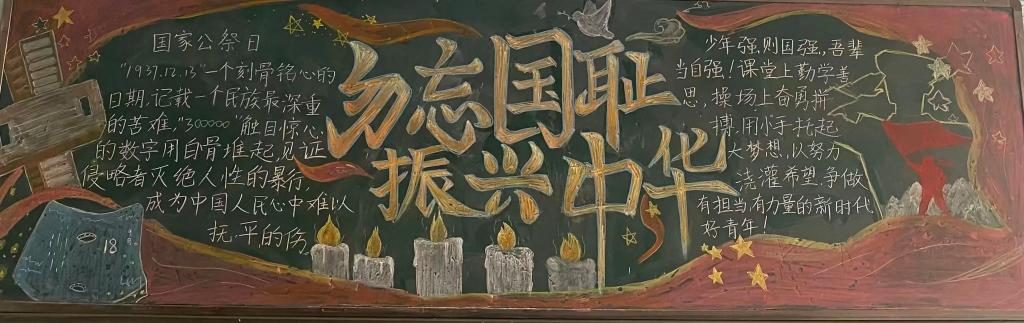 国家公祭日
"1937.12.13"一个刻骨铭心的
日期,记载一个民族最深重
的苦难,"300000"触目惊心
的数字用白骨堆起,见证
侵略者灭绝人性的暴行,
成为中国人民心中难以
抚平的伤
勿忘国耻
振兴中华
少年强,则国强,吾辈
当自强!课堂上勤学善
思,操场上奋勇拼
搏,用小手托起
大梦想,以努力
浇灌希望,争做
有担当有力量的新时代
好青年!
18